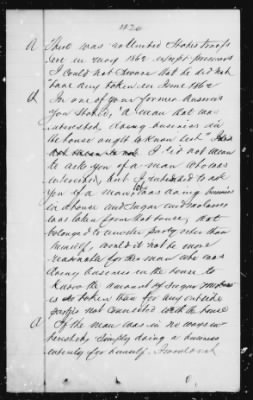 A There was no United States troops
in in May 1862 except prisoners
I could not swear that he did not
have any taken in June 1862
Q In one of your former answers
You stated, "a man that was
interested, doing business in
the house ought to know best"
I did not mean
to ask you of a man who was
interested, but I intended to ask
You if a man was doing business
in a house and sugar and molasses
was taken from that house, that
belonged to another party other than
himself, would it not be more
reasonable for the man who was
doing business in the house to
know the amount of sugar
is so taken than for any outside
parties not connected with the house
A If the man was in no ways in-
terested simply doing a business
entirely for himself, I would not